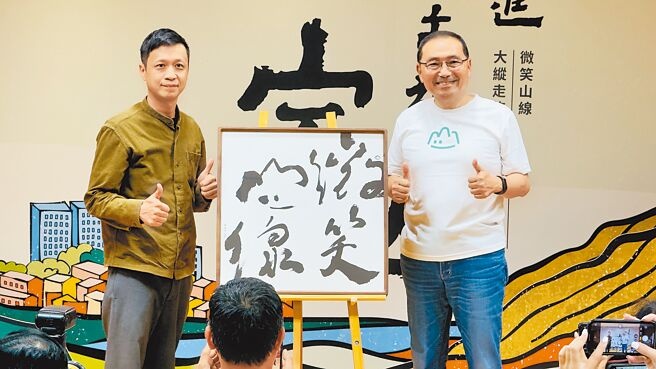 進
微笑山線
大縱走
微笑
山線